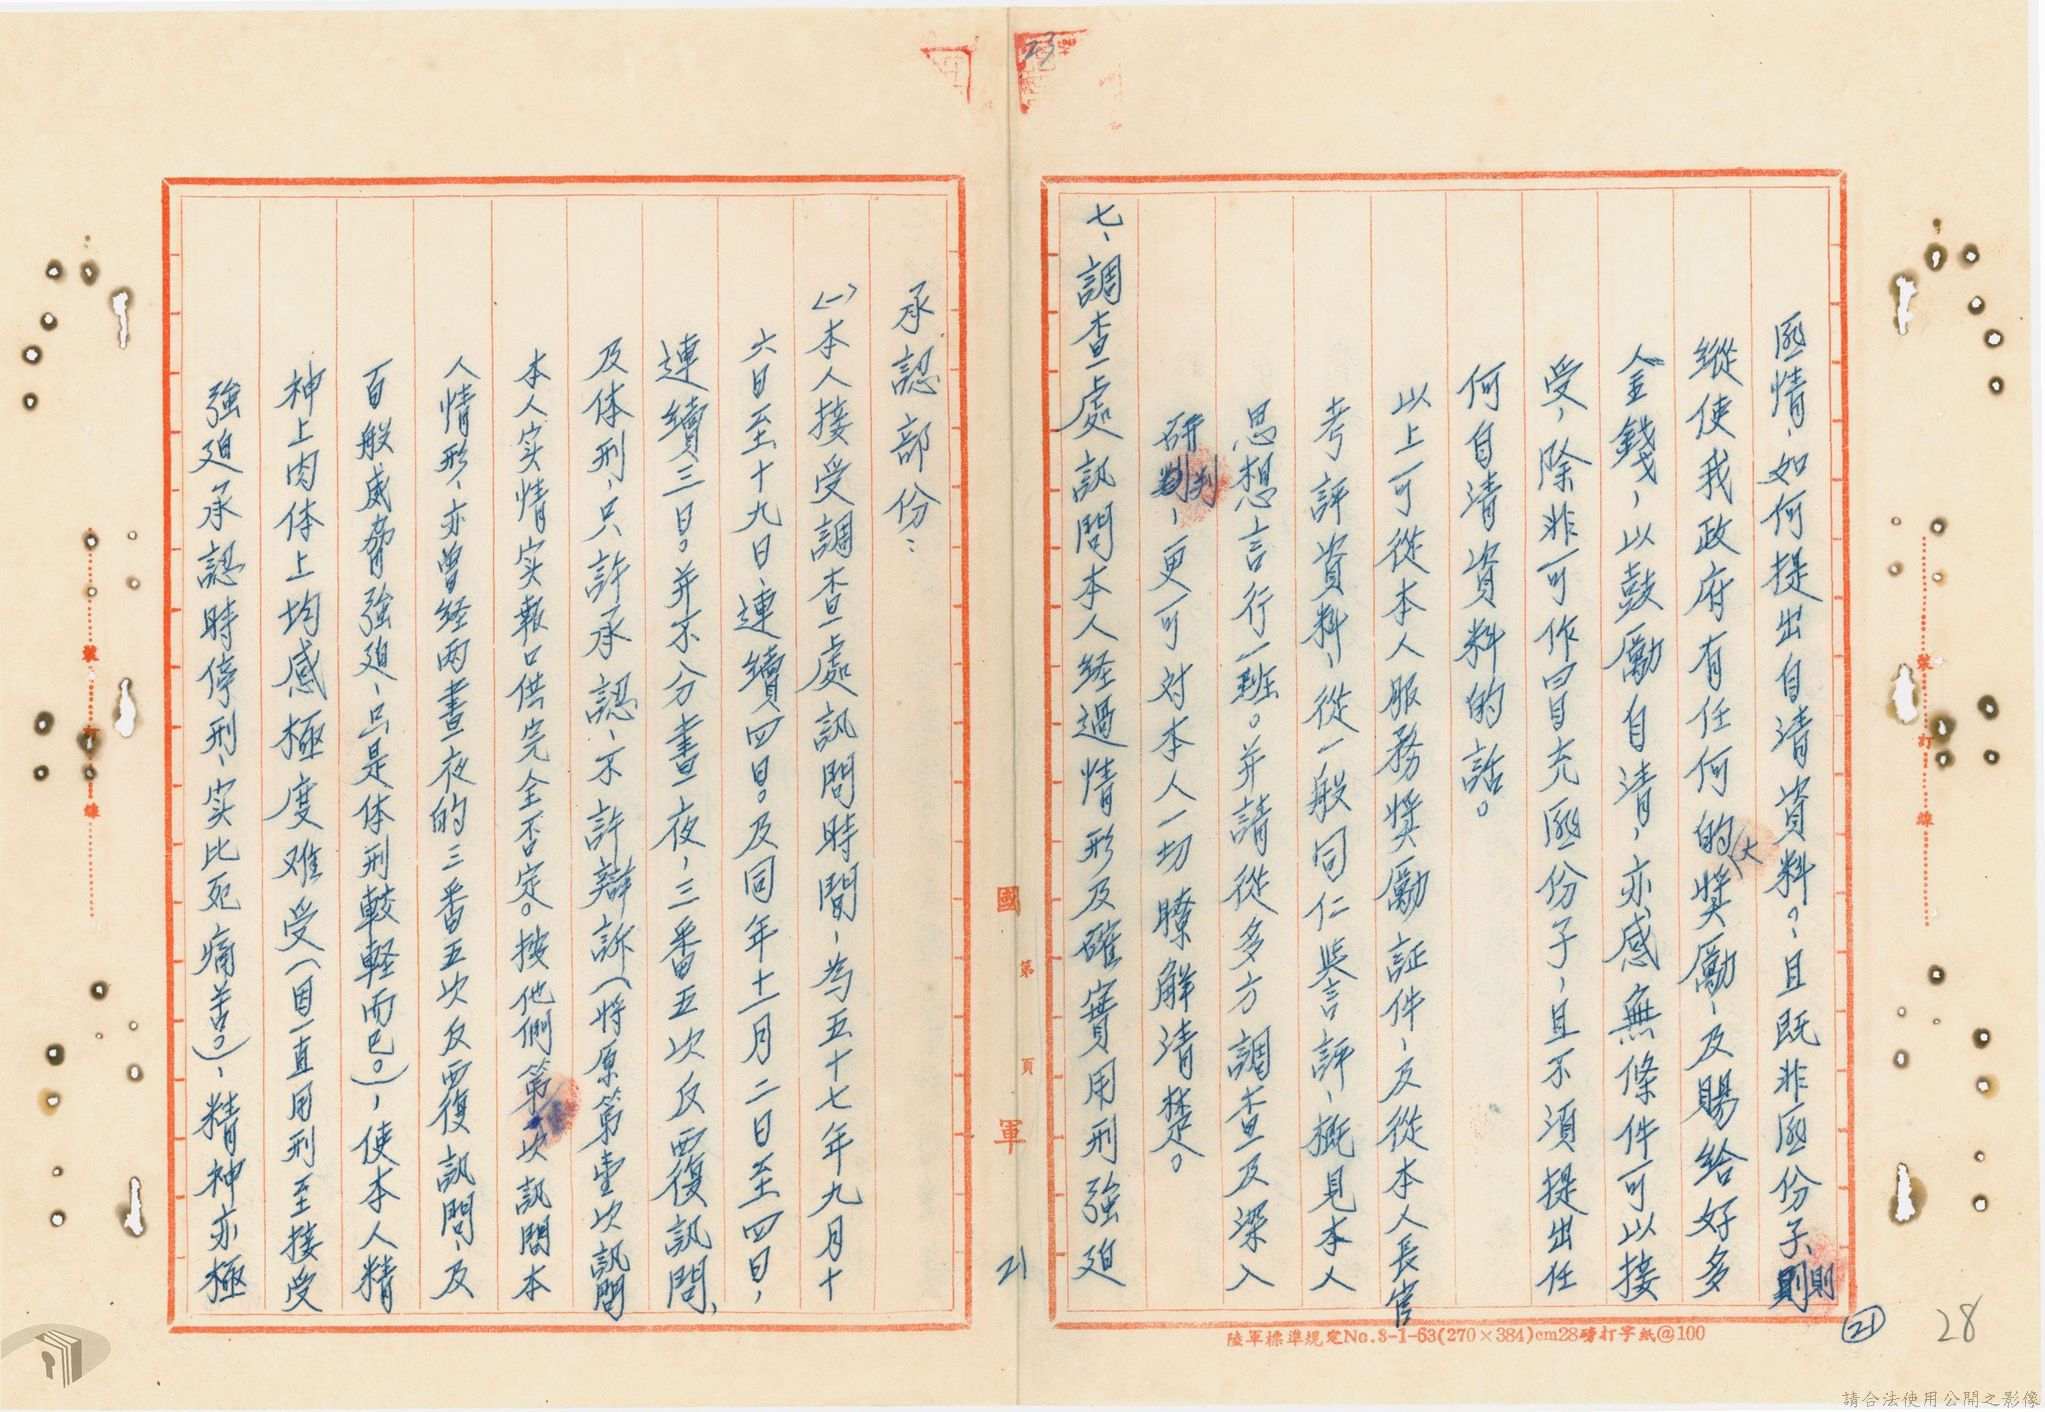 匪情，如何提出自清資料？，且既非匪份子、則則
縱使我政府有任何的(大獎勵，及賜給好多
金錢，以鼓勵自清，亦感無條件可以接
受，除非可作冒充匪份子，且不須提出任
何自清資料的話。
以上可從本人服務獎勵証件，及從本人長官
考評資料，從一般同仁與言評，概見本人
思想言行一班。并請從多方調查及深入
研判判，更可对本人一切瞭解清楚。
七、調查處訊問本人経過情形及確實用刑強迫
承認部份：
(一)本人接受調查處訊問時間，為五十七年九月十
六日至十九日連續四日。及同年十一月二日至四日，
連續三日。并不分晝夜，三番五次反覆訊問，
及体刑，只許承認，不許辯訴（将原第壹次訊問
本人实情实報口供完全否定。按他們第一次訊問本
人情形，亦曾経両晝夜的三番五次反覆訊問，及
百般威脅強迫，只是体刑較軽而已。），使本人精
神上肉体上均感極度难受（因一直用刑至接受
強迫承認時停刑，实比死痛苦。），精神亦極
國軍
第 頁
21
23
裝訂線
裝訂線
陸軍標準規定No.8-1-63(270×384)cm28磅打字紙@100
21
28
請合法使用公開之影像